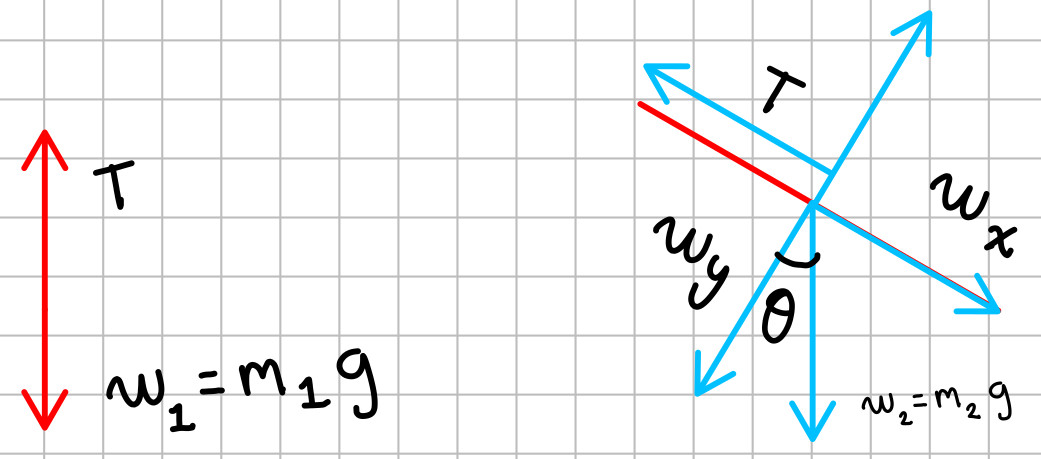 T
w₁ = m₁g
T
wₓ
w_y
θ
w₂ = m₂g